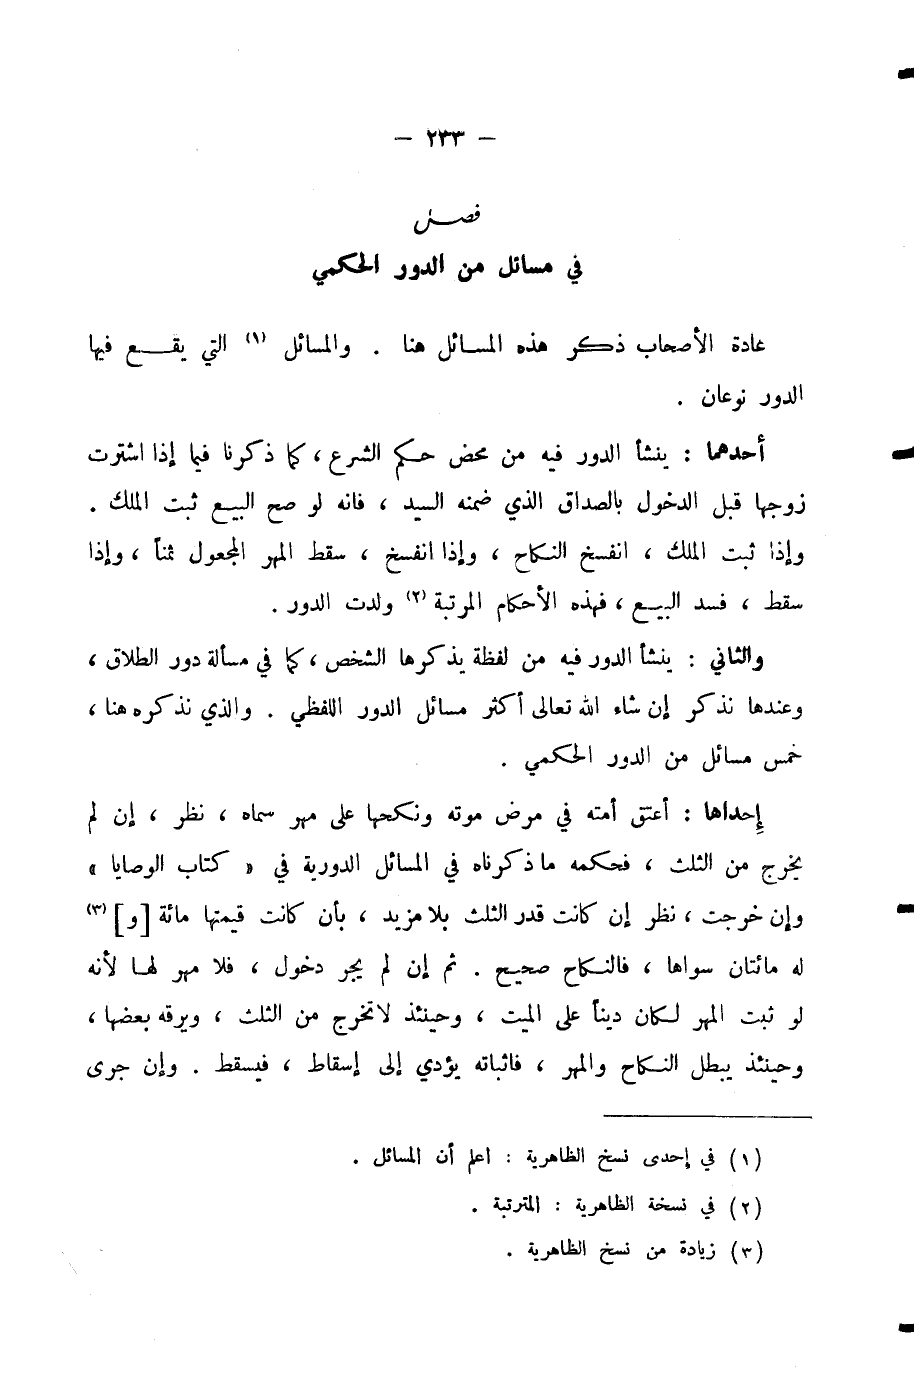 — ٢٣٣ —
فصل
في مسائل من الدور الحكمي
عادة الأصحاب ذكر هذه المسائل هنا . والمسائل (١) التي يقع فيها
الدور نوعان .
أحدهما : ينشأ الدور فيه من محض حكم الشرع ، كما ذكرنا فيما إذا اشترت
زوجها قبل الدخول بالصداق الذي ضمنه السيد ، فانه لو صح البيع ثبت الملك .
وإذا ثبت الملك ، انفسخ النكاح ، وإذا انفسخ ، سقط المهر المجعول ثمناً ، وإذا
سقط ، فسد البيع ، فهذه الأحكام المرتبة (٢) ولدت الدور .
والثاني : ينشأ الدور فيه من لفظة يذكرها الشخص ، كما في مسألة دور الطلاق ،
وعندها نذكر إن شاء الله تعالى أكثر مسائل الدور اللفظي . والذي نذكره هنا ،
خمس مسائل من الدور الحكمي .
إحداها : أعتق أمته في مرض موته ونكحها على مهر سماه ، نظر ، إن لم
يخرج من الثلث ، فحكمه ما ذكرناه في المسائل الدورية في « كتاب الوصايا »
وإن خرجت ، نظر إن كانت قدر الثلث بلا مزيد ، بأن كانت قيمتها مائة [و] (٣)
له مائتان سواها ، فالنكاح صحيح . ثم إن لم يجر دخول ، فلا مهر لها لأنه
لو ثبت المهر لكان ديناً على الميت ، وحينئذ لاتخرج من الثلث ، ويرقه بعضها ،
وحينئذ يبطل النكاح والمهر ، فاثباته يؤدي إلى إسقاط ، فيسقط . وإن جرى
(١) في إحدى نسخ الظاهرية : اعلم أن المسائل .
(٢) في نسخة الظاهرية : المترتبة .
(٣) زيادة من نسخ الظاهرية .